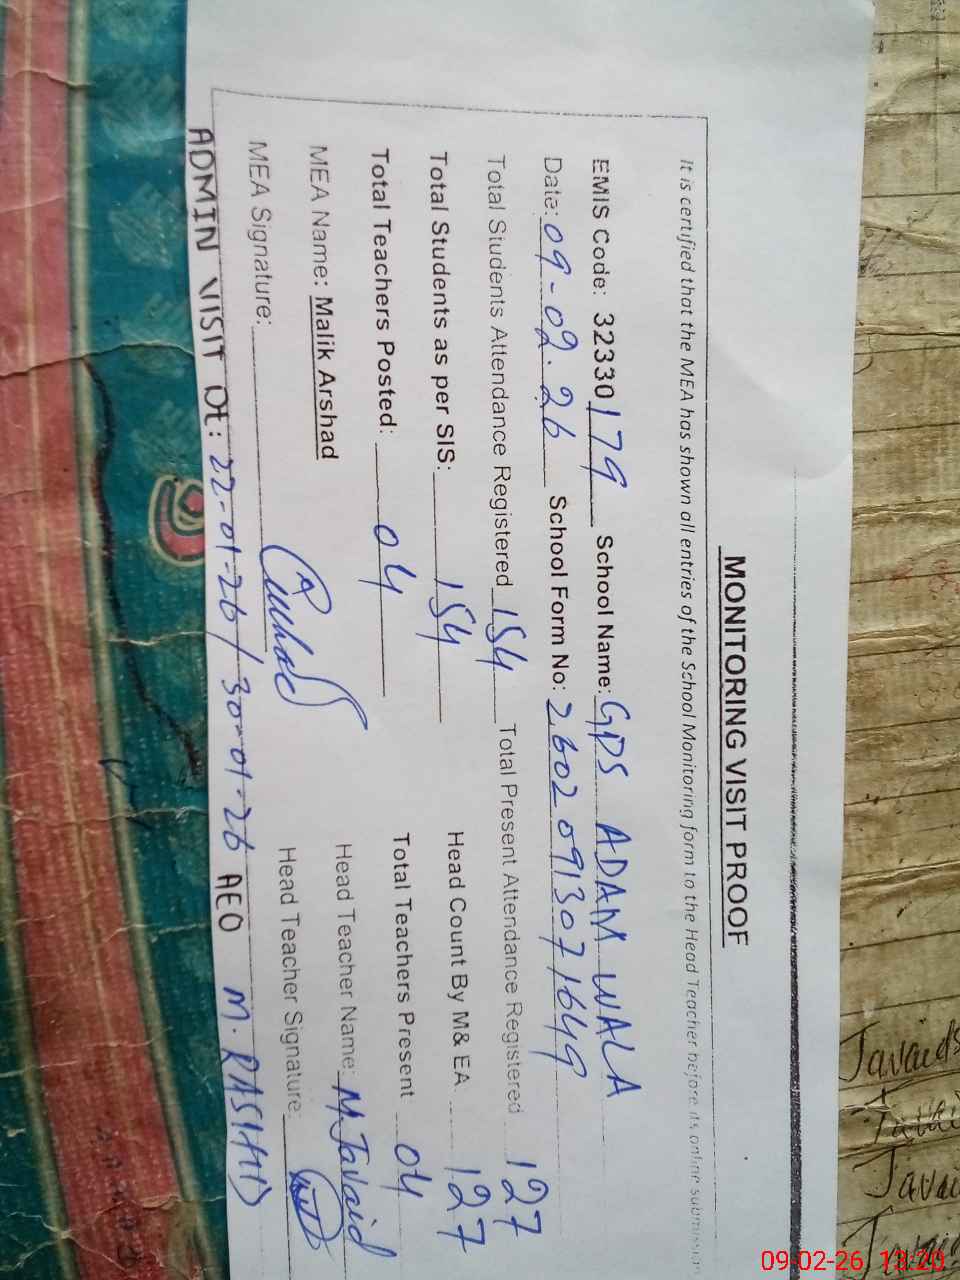 MONITORING VISIT PROOF
It is certified that the MEA has shown all entries of the School Monitoring form to the Head Teacher before its online submission
EMIS Code: 32330179 School Name: GPS ADAM WALA
Date: 09-02.26 School Form No: 26020913071649
Total Students Attendance Registered 154 Total Present Attendance Registered 127
Total Students as per SIS: 154 Head Count By M& EA 127
Total Teachers Posted: 04 Total Teachers Present 04
MEA Name: Malik Arshad Head Teacher Name: M. Javaid
MEA Signature: Head Teacher Signature:
ADMIN VISIT DE: 22-01-26/30-01-26 AEO M. RASHID
Javaid
09-02-26 13:20